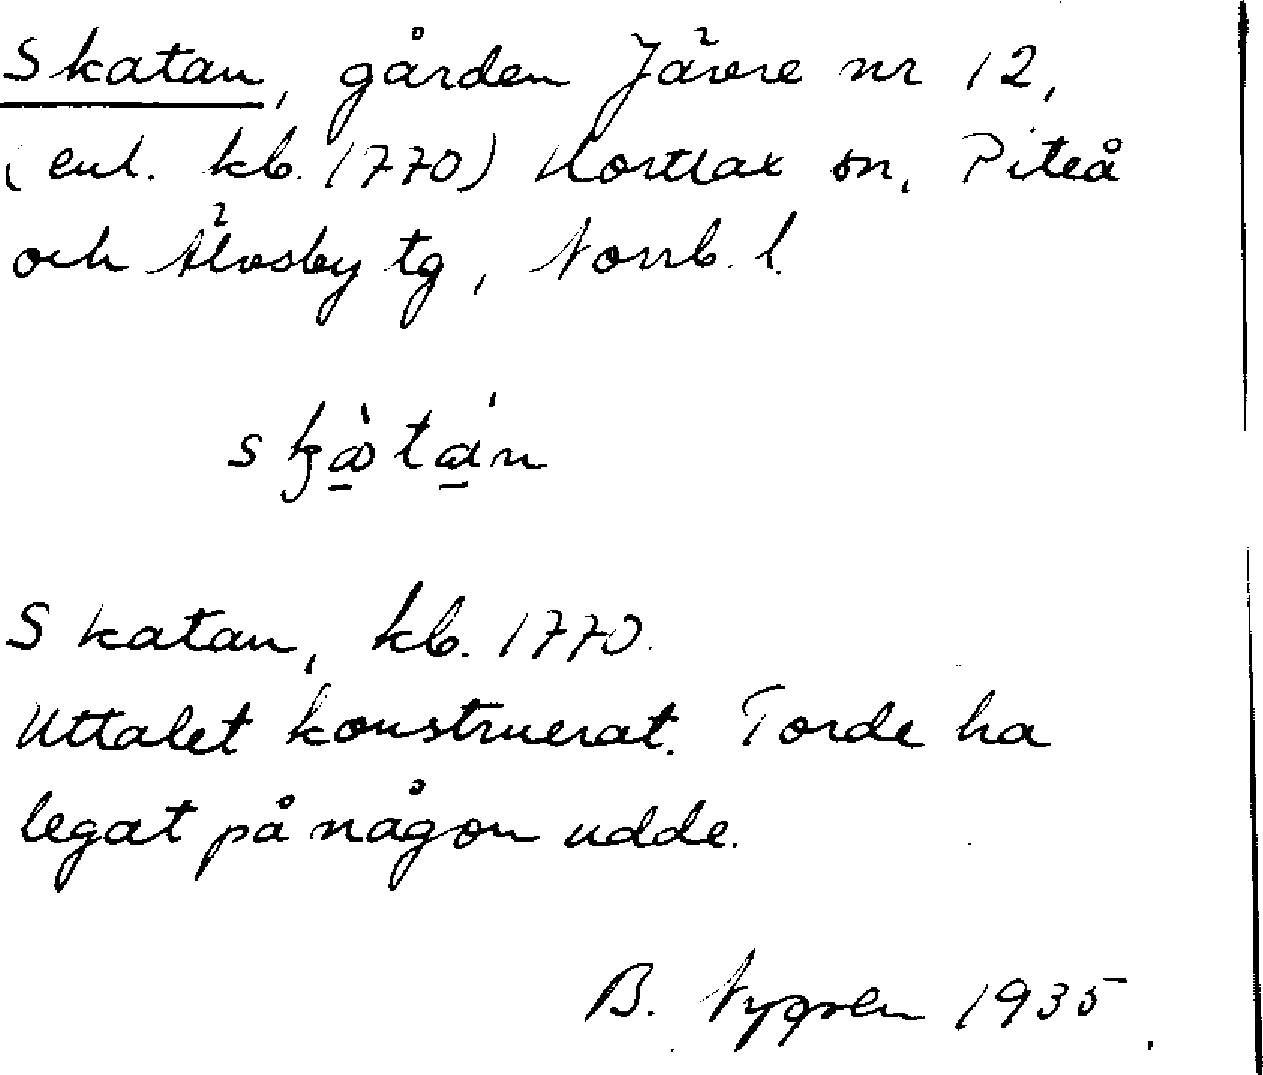 Skatan, gården Jävre nr 12,
(enl. kb. 1770) Hortlax sn, Piteå
och Älvsby tg, Norrb. l.
Skatan, kb. 1770.
Uttalet konstruerat. Torde ha
legat på någon udde.
B. Nygren 1935